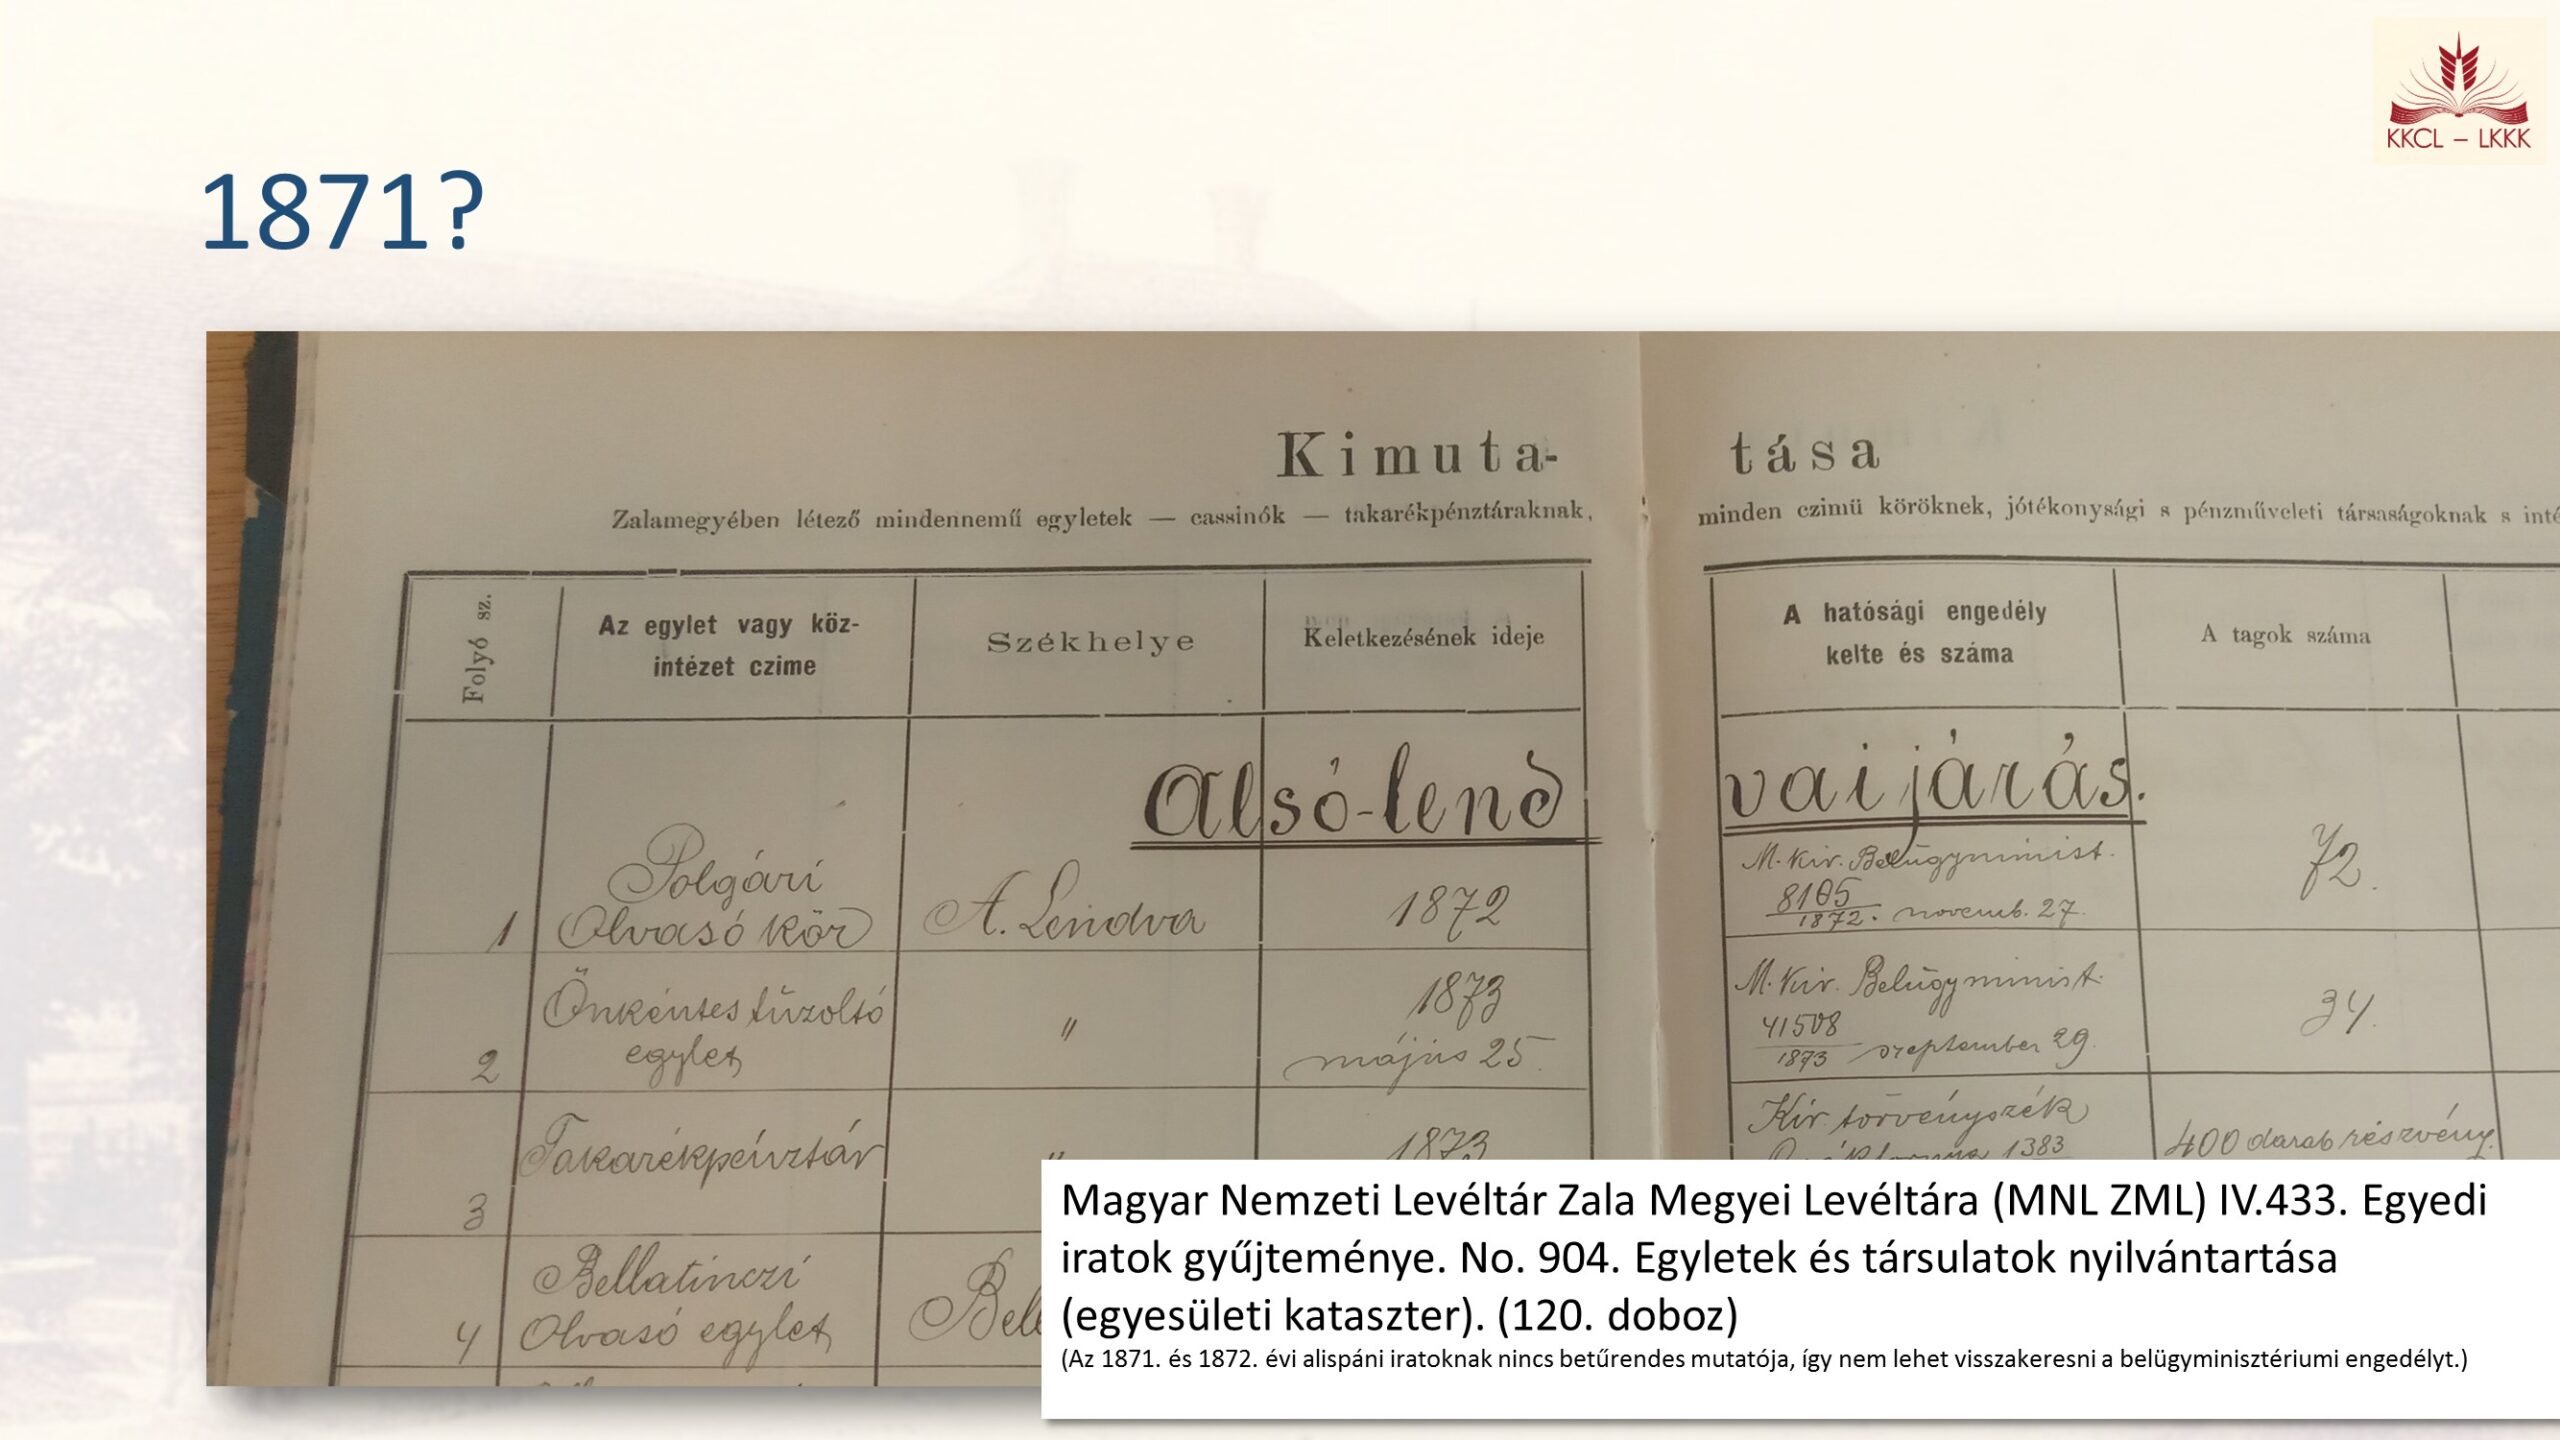 KKCL – LKKK
1871?
Kimuta-
tása
Zalamegyében létező mindennemű egyletek — cassinók — takarékpénztáraknak,
minden czimü köröknek, jótékonysági s pénzműveleti társaságoknak s inté
Folyó sz.
Az egylet vagy köz-
intézet czime
Székhelye
Keletkezésének ideje
A hatósági engedély
kelte és száma
A tagok száma
Alsó-lend
vai járás.
1
Polgári
Olvasó kör
A. Lendva
1872
M. kir. Belügyminist.
8105
1872. novemb. 27.
72.
2
Önkéntes tűzoltó
egylet
"
1873
május 25.
M. kir. Belügyminist.
41508
1873 szeptember 29.
34.
3
Takarékpénztár
"
1873
Kir. törvényszék
1383
400 darab részvény.
4
Bellatinczi
Olvasó egylet
Bell
Magyar Nemzeti Levéltár Zala Megyei Levéltára (MNL ZML) IV.433. Egyedi
iratok gyűjteménye. No. 904. Egyletek és társulatok nyilvántartása
(egyesületi kataszter). (120. doboz)
(Az 1871. és 1872. évi alispáni iratoknak nincs betűrendes mutatója, így nem lehet visszakeresni a belügyminisztériumi engedélyt.)